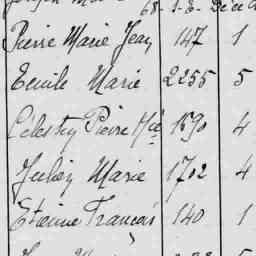 Pierre Marie Jean 147 1
Emile Marie 2255 5
Célestin Pierre Mie 1590 4
Julien Marie 1702 4
Etienne François 140 1